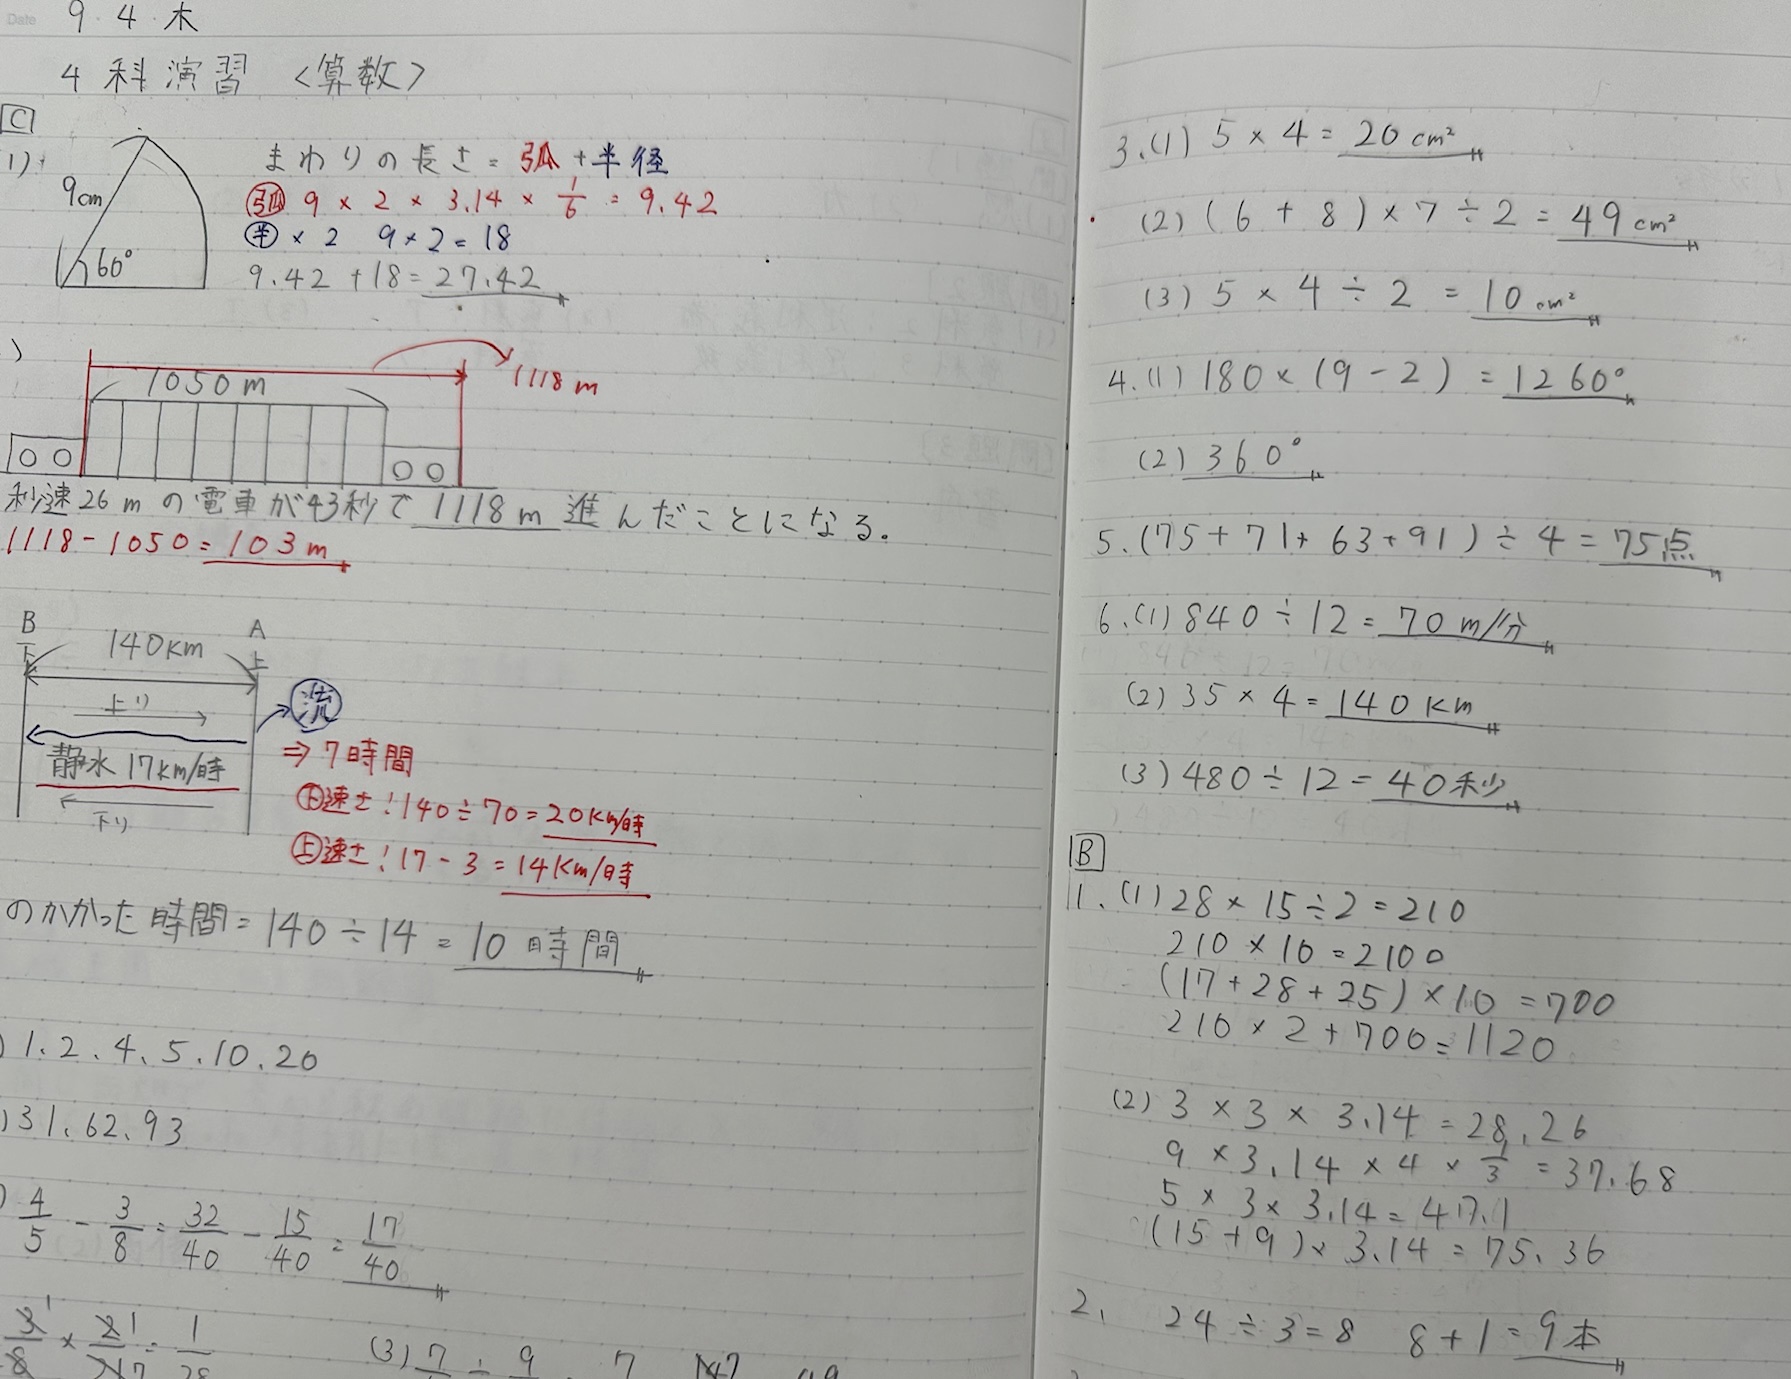 Date
9・4 木
4科演習 〈算数〉
C
1)
9cm
60°
まわりの長さ = 弧 + 半径
弧 9 × 2 × 3.14 × 1/6 = 9.42
半 × 2 9 × 2 = 18
9.42 + 18 = 27.42
)
1050 m
1118 m
秒速26 m の電車が43秒で 1118 m 進んだことになる。
1118 - 1050 = 103 m
B
下
140km
A
上
上り
流
静水 17km/時
下り
⇒ 7時間
下速さ：140 ÷ 70 = 20km/時
上速さ：17 - 3 = 14km/時
のかかった時間 = 140 ÷ 14 = 10 時間
) 1、2、4、5、10、20
) 31、62、93
) 4/5 - 3/8 = 32/40 - 15/40 = 17/40
(3)
3、(1) 5 × 4 = 20 cm²
(2) (6 + 8) × 7 ÷ 2 = 49 cm²
(3) 5 × 4 ÷ 2 = 10 cm²
4、(1) 180 × (9 - 2) = 1260°
(2) 360°
5、(75 + 71 + 63 + 91) ÷ 4 = 75点
6、(1) 840 ÷ 12 = 70 m/分
(2) 35 × 4 = 140 km
(3) 480 ÷ 12 = 40秒
B
1、(1) 28 × 15 ÷ 2 = 210
210 × 10 = 2100
(17 + 28 + 25) × 10 = 700
210 × 2 + 700 = 1120
(2) 3 × 3 × 3.14 = 28.26
9 × 3.14 × 4 × 1/3 = 37.68
5 × 3 × 3.14 = 47.1
(15 + 9) × 3.14 = 75.36
2、 24 ÷ 3 = 8 8 + 1 = 9本